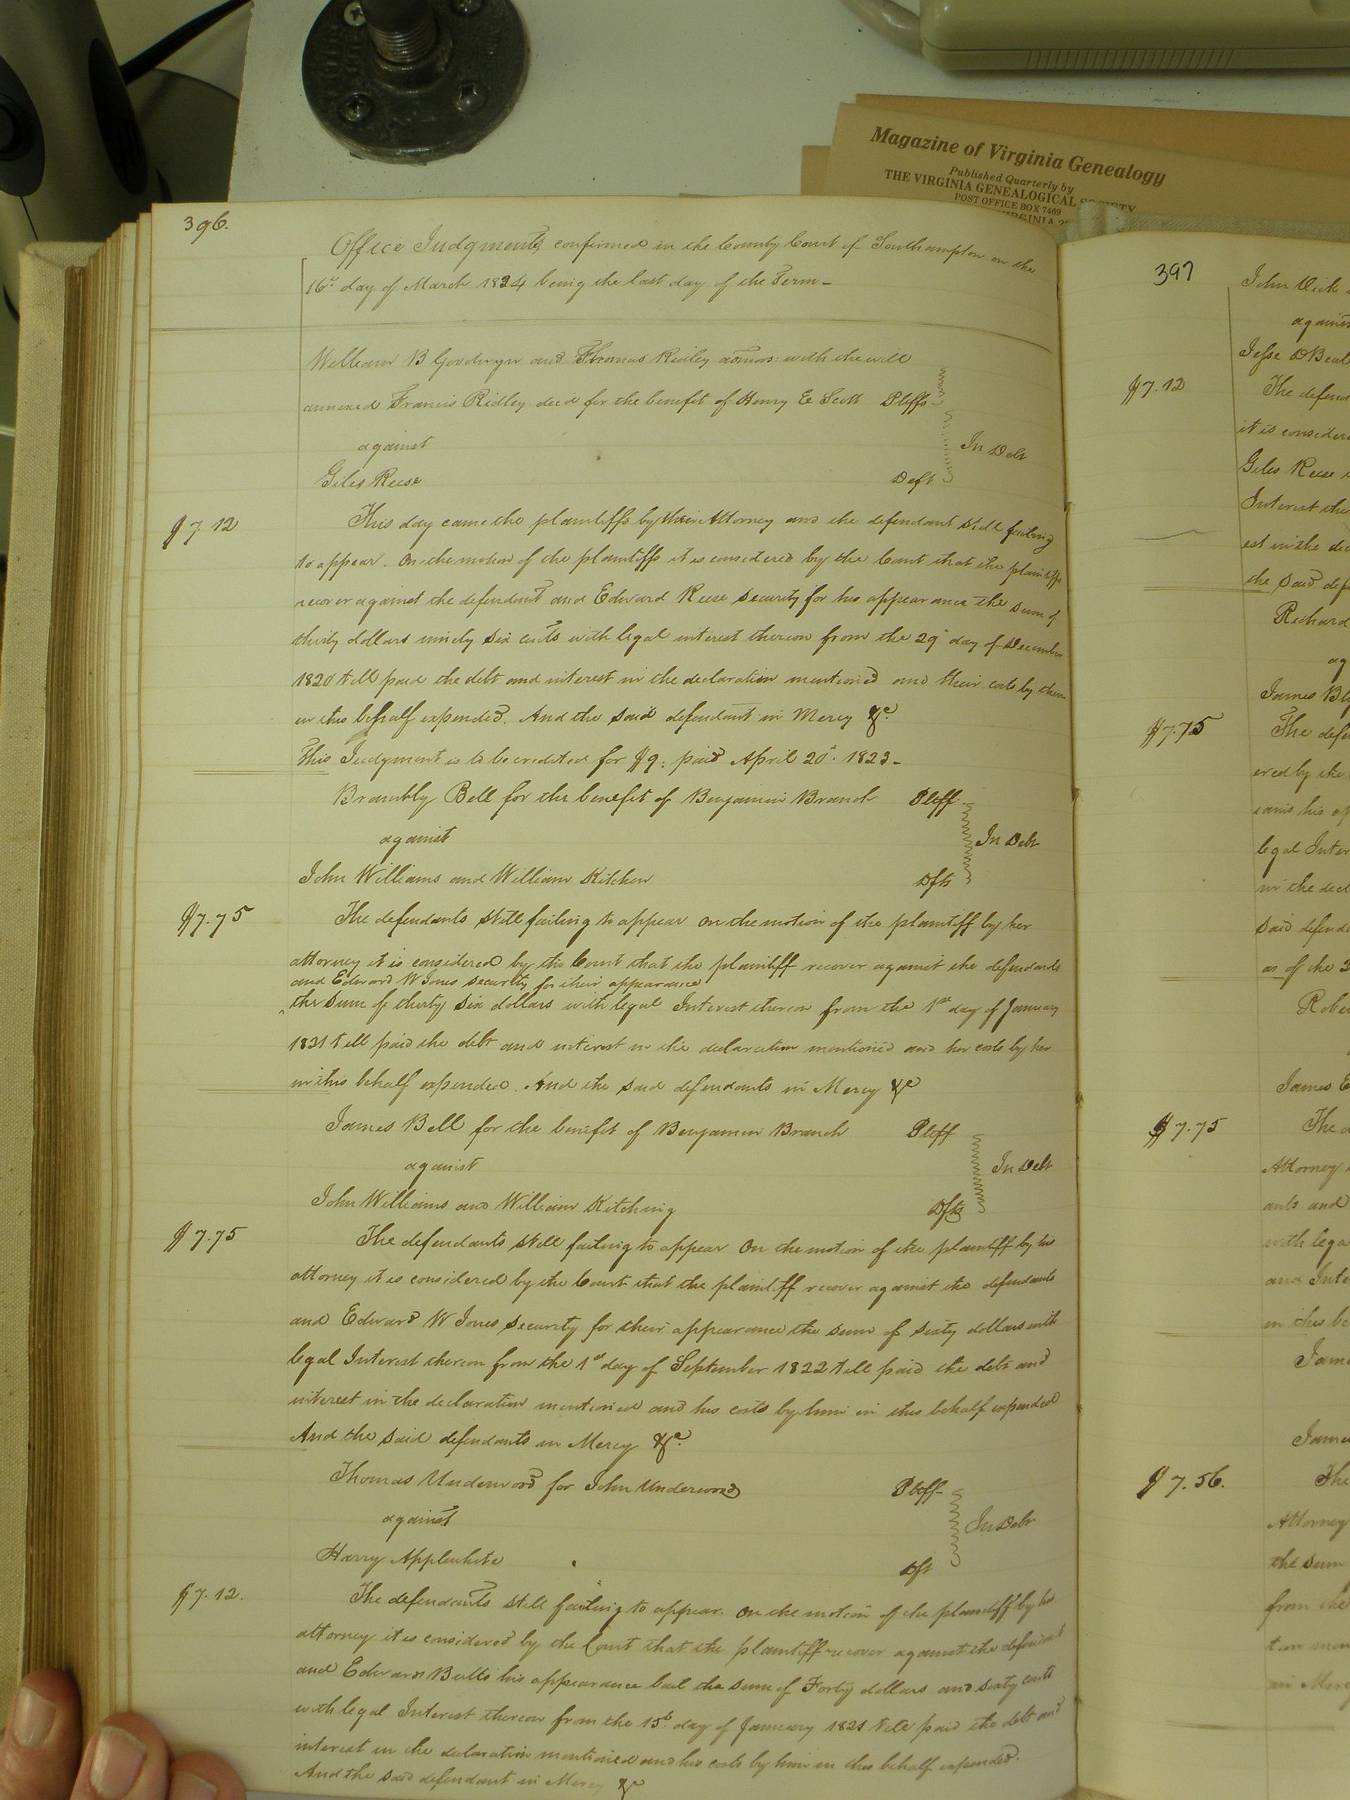 Magazine of Virginia Genealogy
Published Quarterly by
THE VIRGINIA GENEALOGICAL SOCIETY
POST OFFICE BOX 7469
396.
Office Judgments confirmed in the County Court of Southampton on the
16th day of March 1824 being the last day of the Term-
William B Goodwyn and Thomas Ridley admors: with the will
annexed Francis Ridley decd for the benefit of Henry E Scott Pltffs
against In Debt
Giles Reese Deft
$7.12 This day came the plaintiffs by their Attorney and the defendant still failing
to appear. On the motion of the plaintiffs it is considered by the Court that the plaintiffs
recover against the defendant and Edward Reese security for his appearance the sum of
thirty dollars ninety six cents with legal interest thereon from the 29th day of December
1820 till paid the debt and interest in the declaration mentioned and their costs by them
in this behalf expended. And the said defendant in Mercy &c.
This Judgment is to be credited for $9: paid April 20th. 1823-
Brambly Bell for the benefit of Benjamin Branch Pltff
against In Debt
John Williams and William Kitchen Dfts
$7.75 The defendants still failing to appear On the motion of the plaintiff by her
attorney it is considered by the Court that the plaintiff recover against the defendants
and Edward W Jones security for their appearance
the sum of thirty six dollars with legal Interest thereon from the 1st day of January
1821 till paid the debt and interest in the declaration mentioned and her costs by her
in this behalf expended. And the said defendants in Mercy &c
James Bell for the benefit of Benjamin Branch Pltff
against In Debt
John Williams and William Kitching Dfts
$7.75 The defendants still failing to appear On the motion of the plaintiff by his
attorney it is considered by the Court that the plaintiff recover against the defendants
and Edward W Jones security for their appearance the sum of sixty dollars with
legal Interest thereon from the 1st day of September 1822 till paid the debt and
interest in the declaration mentioned and his costs by him in this behalf expended
And the said defendants in Mercy &c.
Thomas Underwood for John Underwood Pltff
against In Debt
Harry Applewhite Dft
$7.12. The defendants still failing to appear. On the motion of the plaintiff by his
attorney it is considered by the Court that the plaintiff recover against the defendant
and Edward Butts his appearance bail the sum of Forty dollars and sixty cents
with legal Interest thereon from the 15th. day of January 1821 till paid the debt and
interest in the declaration mentioned and his costs by him in this behalf expended.
And the said defendant in Mercy &c
397
John Dick
against
Jesse D
$7.12 The
it is
Giles Reese
Interest
est in the
the said
Richard
James
$7.75 The
ered by the
legal
in the
said
as of the
James
$7.75 The
Attorney
ants and
with
and
in this
$7.56. The
Attorney
the sum
from the
in